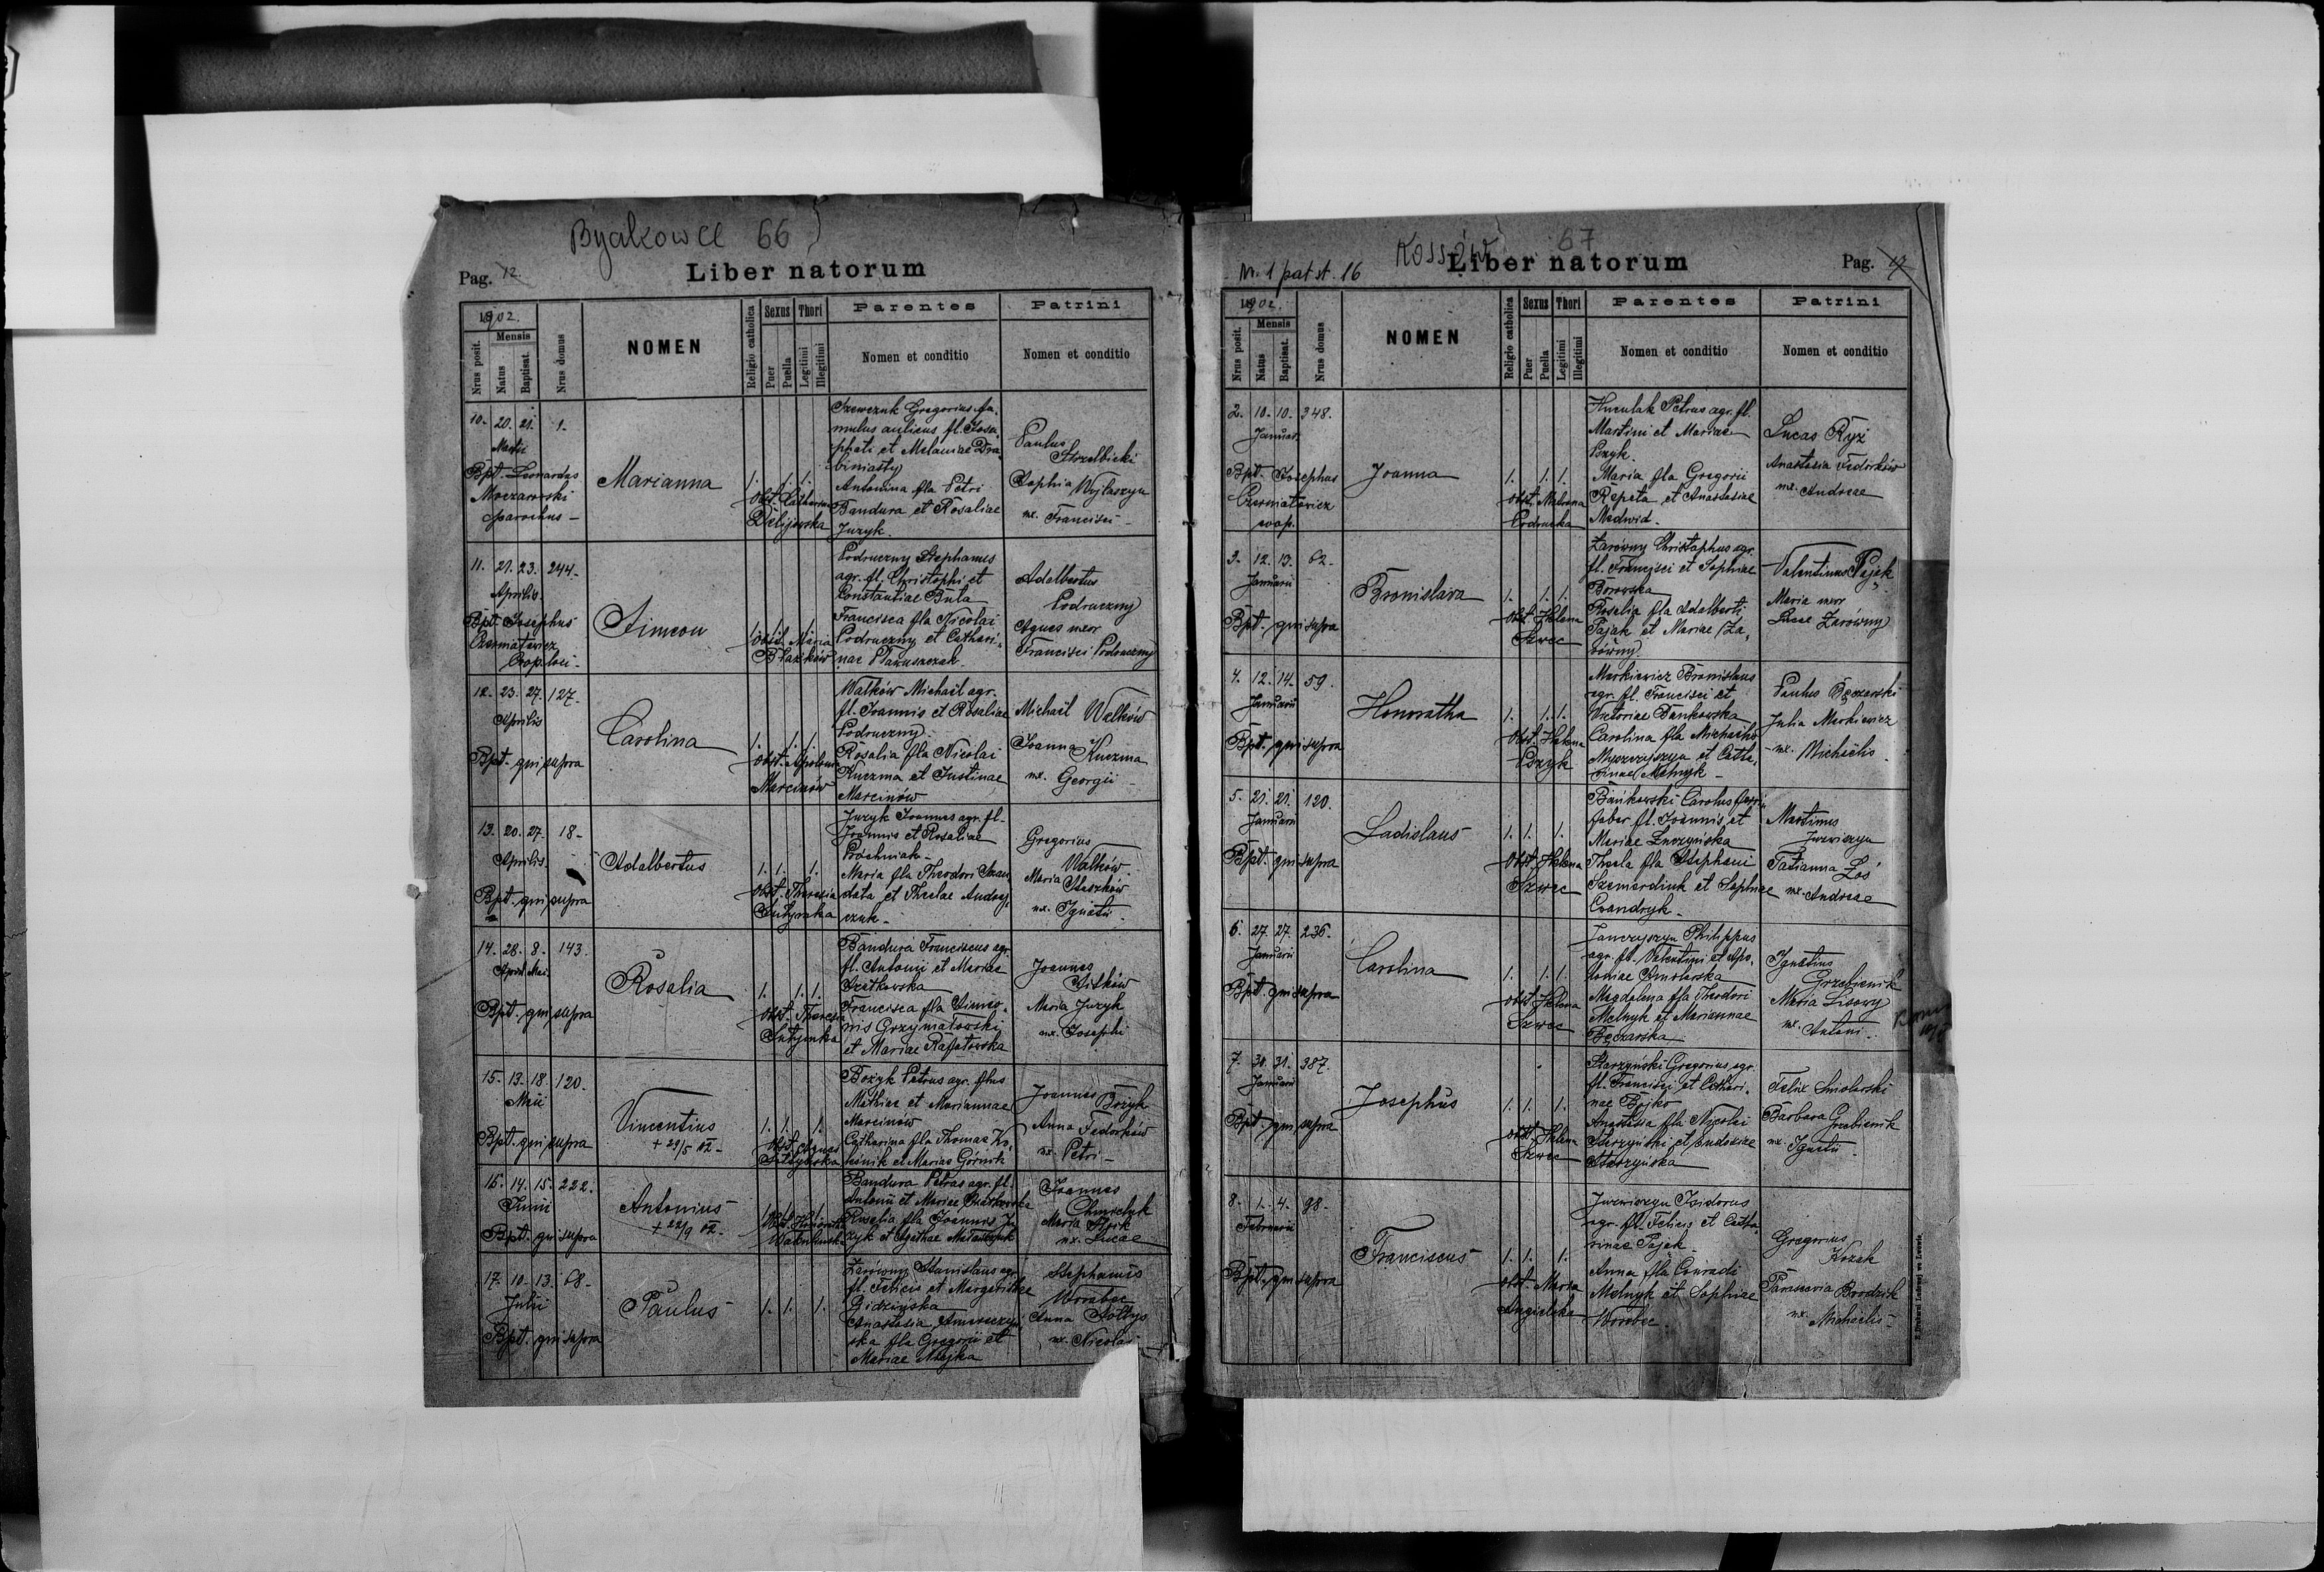 Byałkowce 66
Pag. 12.
Liber natorum
1902.
Mensis
Nrus posit.
Natus
Baptisat.
Nrus domus
NOMEN
Religio catholica
Sexus
Puer
Puella
Thori
Legitimi
Illegitimi
Parentes
Nomen et conditio
Patrini
Nomen et conditio
10. 20. 21. 1.
Martii
Bpt. Leonardus
Moczarowski
parochus
Marianna
1. 1. 1.
obst. Catharina
Szewczuk Gregorius fa-
mulus aulicus fl. Josa-
phati et Melaniae Dra-
biniasty
Antonina fla Petri
Bandura et Rosaliae
Juzyk.
Paulus
Strzelbicki
Sophia Wytaszyn
ux. Francisci
11. 21. 23. 244.
Aprilis
Bpt. Josephus
Czermatowicz
Coop. loci
Simeon
obst. Maria
Podruczny Stephanus
agr. fl. Christophi et
Constantiae Buta
Francisca fla Nicolai
Podruczny et Cathari-
nae
Adalbertus
Podruczny
Agnes uxor
Francisci Podruczny
12. 23. 27. 127.
Aprilis
Bpt. qui supra
Carolina
1. 1. 1.
obst. Apolonia
Marcinów
Walków Michaël agr.
fl. Joannis et Rosaliae
Podruczny.
Rosalia fla Nicolai
Kuczma et Justinae
Marcinów
Michaël Walków
Joanna Kuczma
ux. Georgii
13. 20. 27. 18.
Aprilis
Bpt. qui supra
Adalbertus
1. 1. 1.
obst. Theresia
Juzyk Joannes agr. fl.
Joannis et Rosaliae
Próchniak
Maria fla Theodori Szan-
data et Theclae Andrej-
czuk
Gregorius
Walków
Maria Staszków
ux. Ignatii
14. 28. 8. 143.
April. Mai.
Bpt. qui supra
Rosalia
1. 1. 1.
obst. Theresia
Bandura Franciscus agr.
fl. Antonii et Mariae
Szatkowska
Francisca fla Simeo-
nis Grzymałowski
et Mariae Rafałowska
Joannes
Sitków
Maria Juzyk
ux. Josephi
15. 13. 18. 120.
Maii
Bpt. qui supra
Vincentius
+ 29/5 02
1. 1. 1.
obst. Agnes
Bożyk Petrus agr. flius
Mathiae et Mariannae
Marcinów
Catharina fla Thomae Ko-
leśnik et Mariae Górnik
Joannes Bożyk
Anna Fedorków
ux. Petri
16. 14. 15. 222.
Junii
Bpt. qui supra
Antonius
+ 22/9 02
Bandura Petrus agr. fl.
Antonii et Mariae Szatkowska
Rosalia fla Joannis Ju-
zyk et Agathae
Joannes
Chmielyk
Maria
ux. Lucae
17. 10. 13. 68.
Julii
Bpt. qui supra
Paulus
1. 1. 1.
Zarówny Stanislaus agr.
fl. Felicis et Margarithae
Gidzińska
Anastasia
ska fla Gregorii et
Mariae
Stephanus
Worobec
Anna Sołtys
ux. Nicolai
Nr. 1 pat st. 16
Kossów
67
Liber natorum
Pag. 17
1902.
Mensis
Nrus posit.
Natus
Baptisat.
Nrus domus
NOMEN
Religio catholica
Sexus
Puer
Puella
Thori
Legitimi
Illegitimi
Parentes
Nomen et conditio
Patrini
Nomen et conditio
2. 10. 10. 348.
Januar.
Bpt. Josephus
Czermatowicz
coop.
Joanna
1. 1. 1.
obst. Matrona
Huculak Petrus agr. fl.
Martini et Mariae
Bzyk.
Maria fla Gregorii
Repeta et Anastasiae
Medwid.
Lucas Ryż
Anastasia Fedorków
ux. Andreae
3. 12. 13. 62.
Januarii
Bpt. qui supra
Bronislava
1. 1. 1.
obst. Helena
Szwec
Zarówny Christophus agr.
fl. Francisci et Sophiae
Borowska
Rosalia fla Adalberti
Pająk et Mariae Za-
równy.
Valentinus Pająk
Maria uxor
Lucae Zarówny
4. 12. 14. 59.
Januarii
Bpt. qui supra
Honoratha
1. 1. 1.
obst. Helena
Bzyk
Markiewicz Bronislaus
agr. fl. Francisci et
Victoriae Bankowska
Carolina fla Michaëlis
Myszczyszyn et Catha-
rinae Melnyk
Paulus Bęczarski
Julia Markiewicz
ux. Michaëlis
5. 21. 21. 120.
Januarii
Bpt. qui supra
Ladislaus
1. 1. 1.
obst. Helena
Szwec
Bańkowski Carolus ferri-
faber fl. Joannis et
Mariae Luczyńska
Thecla fla Stephani
Szemerdiuk et Sophiae
Martinus
Jurwiszyn
Tatianna Łoś
ux. Andreae
6. 27. 27. 236.
Januarii
Bpt. qui supra
Carolina
1. 1. 1.
obst. Helena
Szwec
Janczyszyn Philippus
agr. fl. Valentini et Apo-
loniae Smolarska
Magdalena fla Theodori
Melnyk et Mariannae
Bęczarska
Ignatius
Grzebieniak
Maria Lisowy
ux. Antoni
7. 30. 31. 387.
Januarii
Bpt. qui supra
Josephus
1. 1. 1.
obst. Helena
Szwec
Starzyński Gregorius agr.
fl. Francisci et Cathari-
nae Bojko
Anastasia fla Nicolai
Starzyński et Eudoxiae
Starzyńska
Felix Smolarski
Barbara Grzebieniak
ux. Ignatii
8. 1. 4. 98.
Februarii
Bpt. qui supra
Franciscus
1. 1. 1.
obst. Maria
Angielska
Jurwiszyn Isidorus
agr. fl. Felicis et Catha-
rinae Pająk
Anna fla Conradi
Melnyk et Sophiae
Worobec
Gregorius
Kozak
Parascevia Brodzik
ux. Michaëlis